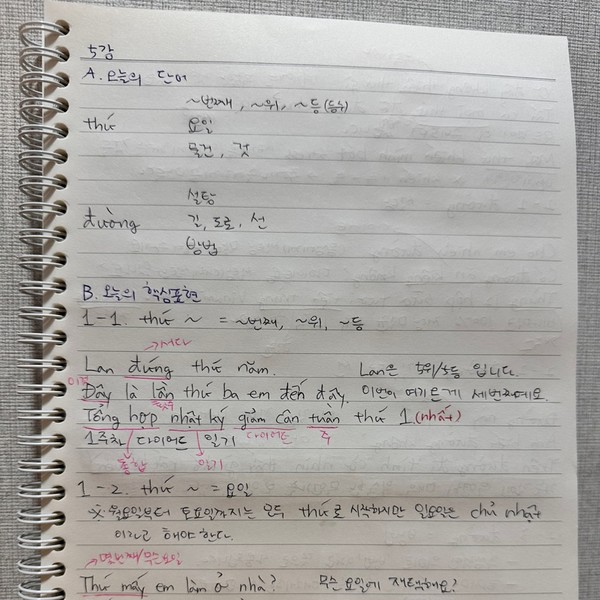 5강
A. 오늘의 단어
~번째, ~위, ~등(등수)
thứ 요일
물건, 것
설탕
đường 길, 도로, 선
방법
B. 오늘의 핵심표현
1-1. thứ ~ = ~번째, ~위, ~등
→서다
Lan đứng thứ năm. Lan은 5위/5등 입니다.
Đây là lần thứ ba em đến đây. 이번이 여기 온게 세번째예요.
Tổng hợp nhật ký giảm cân tuần thứ 1 (nhất)
1주차 다이어트 일기 다이어트 주
종합 일기
1-2. thứ ~ = 요일
※ 월요일부터 토요일까지는 모두 thứ로 시작하지만 일요일은 chủ nhật
이라고 해야 한다.
→몇번째/무슨요일
Thứ mấy em làm ở nhà? 무슨 요일에 재택해요?